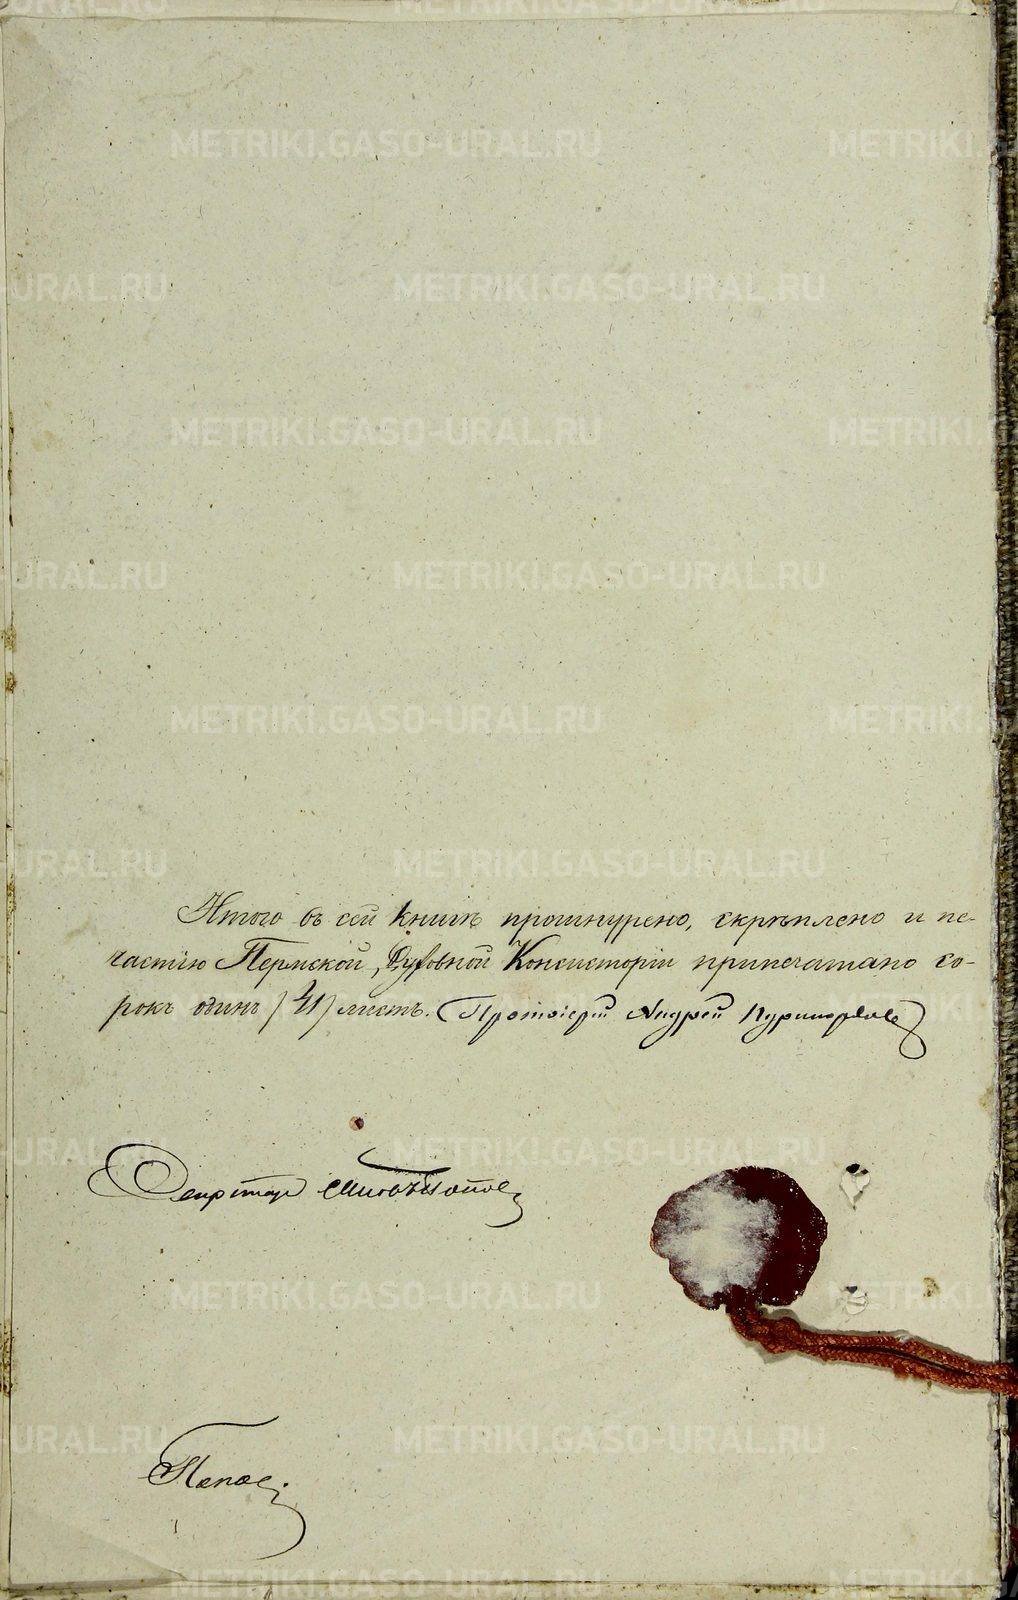 Итого въ сей книгѣ прошнурено, скрѣплено и пе-
чатію Пермской Духовной Консисторіи припечатано со-
рокъ одинъ /41/ листъ. Протоіерей Андрей
Секретарь Поповъ
METRIKI.GASO-URAL.RU